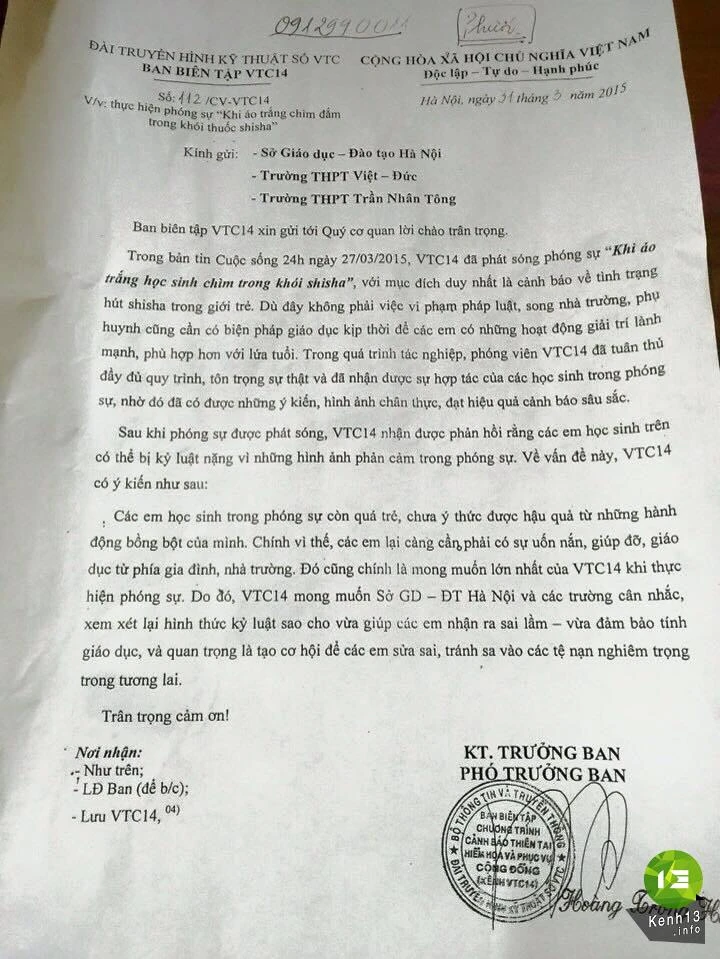 0912990011
ĐÀI TRUYỀN HÌNH KỸ THUẬT SỐ VTC
BAN BIÊN TẬP VTC14
CỘNG HÒA XÃ HỘI CHỦ NGHĨA VIỆT NAM
Độc lập – Tự do – Hạnh phúc
Số: 112 /CV-VTC14
V/v: thực hiện phóng sự “Khi áo trắng chìm đắm
trong khói thuốc shisha”
Hà Nội, ngày 31 tháng 3 năm 2015
Kính gửi: - Sở Giáo dục – Đào tạo Hà Nội
- Trường THPT Việt – Đức
- Trường THPT Trần Nhân Tông
Ban biên tập VTC14 xin gửi tới Quý cơ quan lời chào trân trọng.
Trong bản tin Cuộc sống 24h ngày 27/03/2015, VTC14 đã phát sóng phóng sự “Khi áo
trắng học sinh chìm trong khói shisha”, với mục đích duy nhất là cảnh báo về tình trạng
hút shisha trong giới trẻ. Dù đây không phải việc vi phạm pháp luật, song nhà trường, phụ
huynh cũng cần có biện pháp giáo dục kịp thời để các em có những hoạt động giải trí lành
mạnh, phù hợp hơn với lứa tuổi. Trong quá trình tác nghiệp, phóng viên VTC14 đã tuân thủ
đầy đủ quy trình, tôn trọng sự thật và đã nhận được sự hợp tác của các học sinh trong phóng
sự, nhờ đó đã có được những ý kiến, hình ảnh chân thực, đạt hiệu quả cảnh báo sâu sắc.
Sau khi phóng sự được phát sóng, VTC14 nhận được phản hồi rằng các em học sinh trên
có thể bị kỷ luật nặng vì những hình ảnh phản cảm trong phóng sự. Về vấn đề này, VTC14
có ý kiến như sau:
Các em học sinh trong phóng sự còn quá trẻ, chưa ý thức được hậu quả từ những hành
động bồng bột của mình. Chính vì thế, các em lại càng cần phải có sự uốn nắn, giúp đỡ, giáo
dục từ phía gia đình, nhà trường. Đó cũng chính là mong muốn lớn nhất của VTC14 khi thực
hiện phóng sự. Do đó, VTC14 mong muốn Sở GD – ĐT Hà Nội và các trường cân nhắc,
xem xét lại hình thức kỷ luật sao cho vừa giúp các em nhận ra sai lầm – vừa đảm bảo tính
giáo dục, và quan trọng là tạo cơ hội để các em sửa sai, tránh sa vào các tệ nạn nghiêm trọng
trong tương lai.
Trân trọng cảm ơn!
Nơi nhận:
- Như trên;
- LĐ Ban (để b/c);
- Lưu VTC14, 04)
KT. TRƯỞNG BAN
PHÓ TRƯỞNG BAN
BỘ THÔNG TIN VÀ TRUYỀN THÔNG
BAN BIÊN TẬP
CHƯƠNG TRÌNH
CẢNH BÁO THIÊN TAI
HIỂM HỌA VÀ PHỤC VỤ
CỘNG ĐỒNG
(KÊNH VTC14)
ĐÀI TRUYỀN HÌNH KỸ THUẬT SỐ VTC
Hoàng Trọng
Kenh13
.info